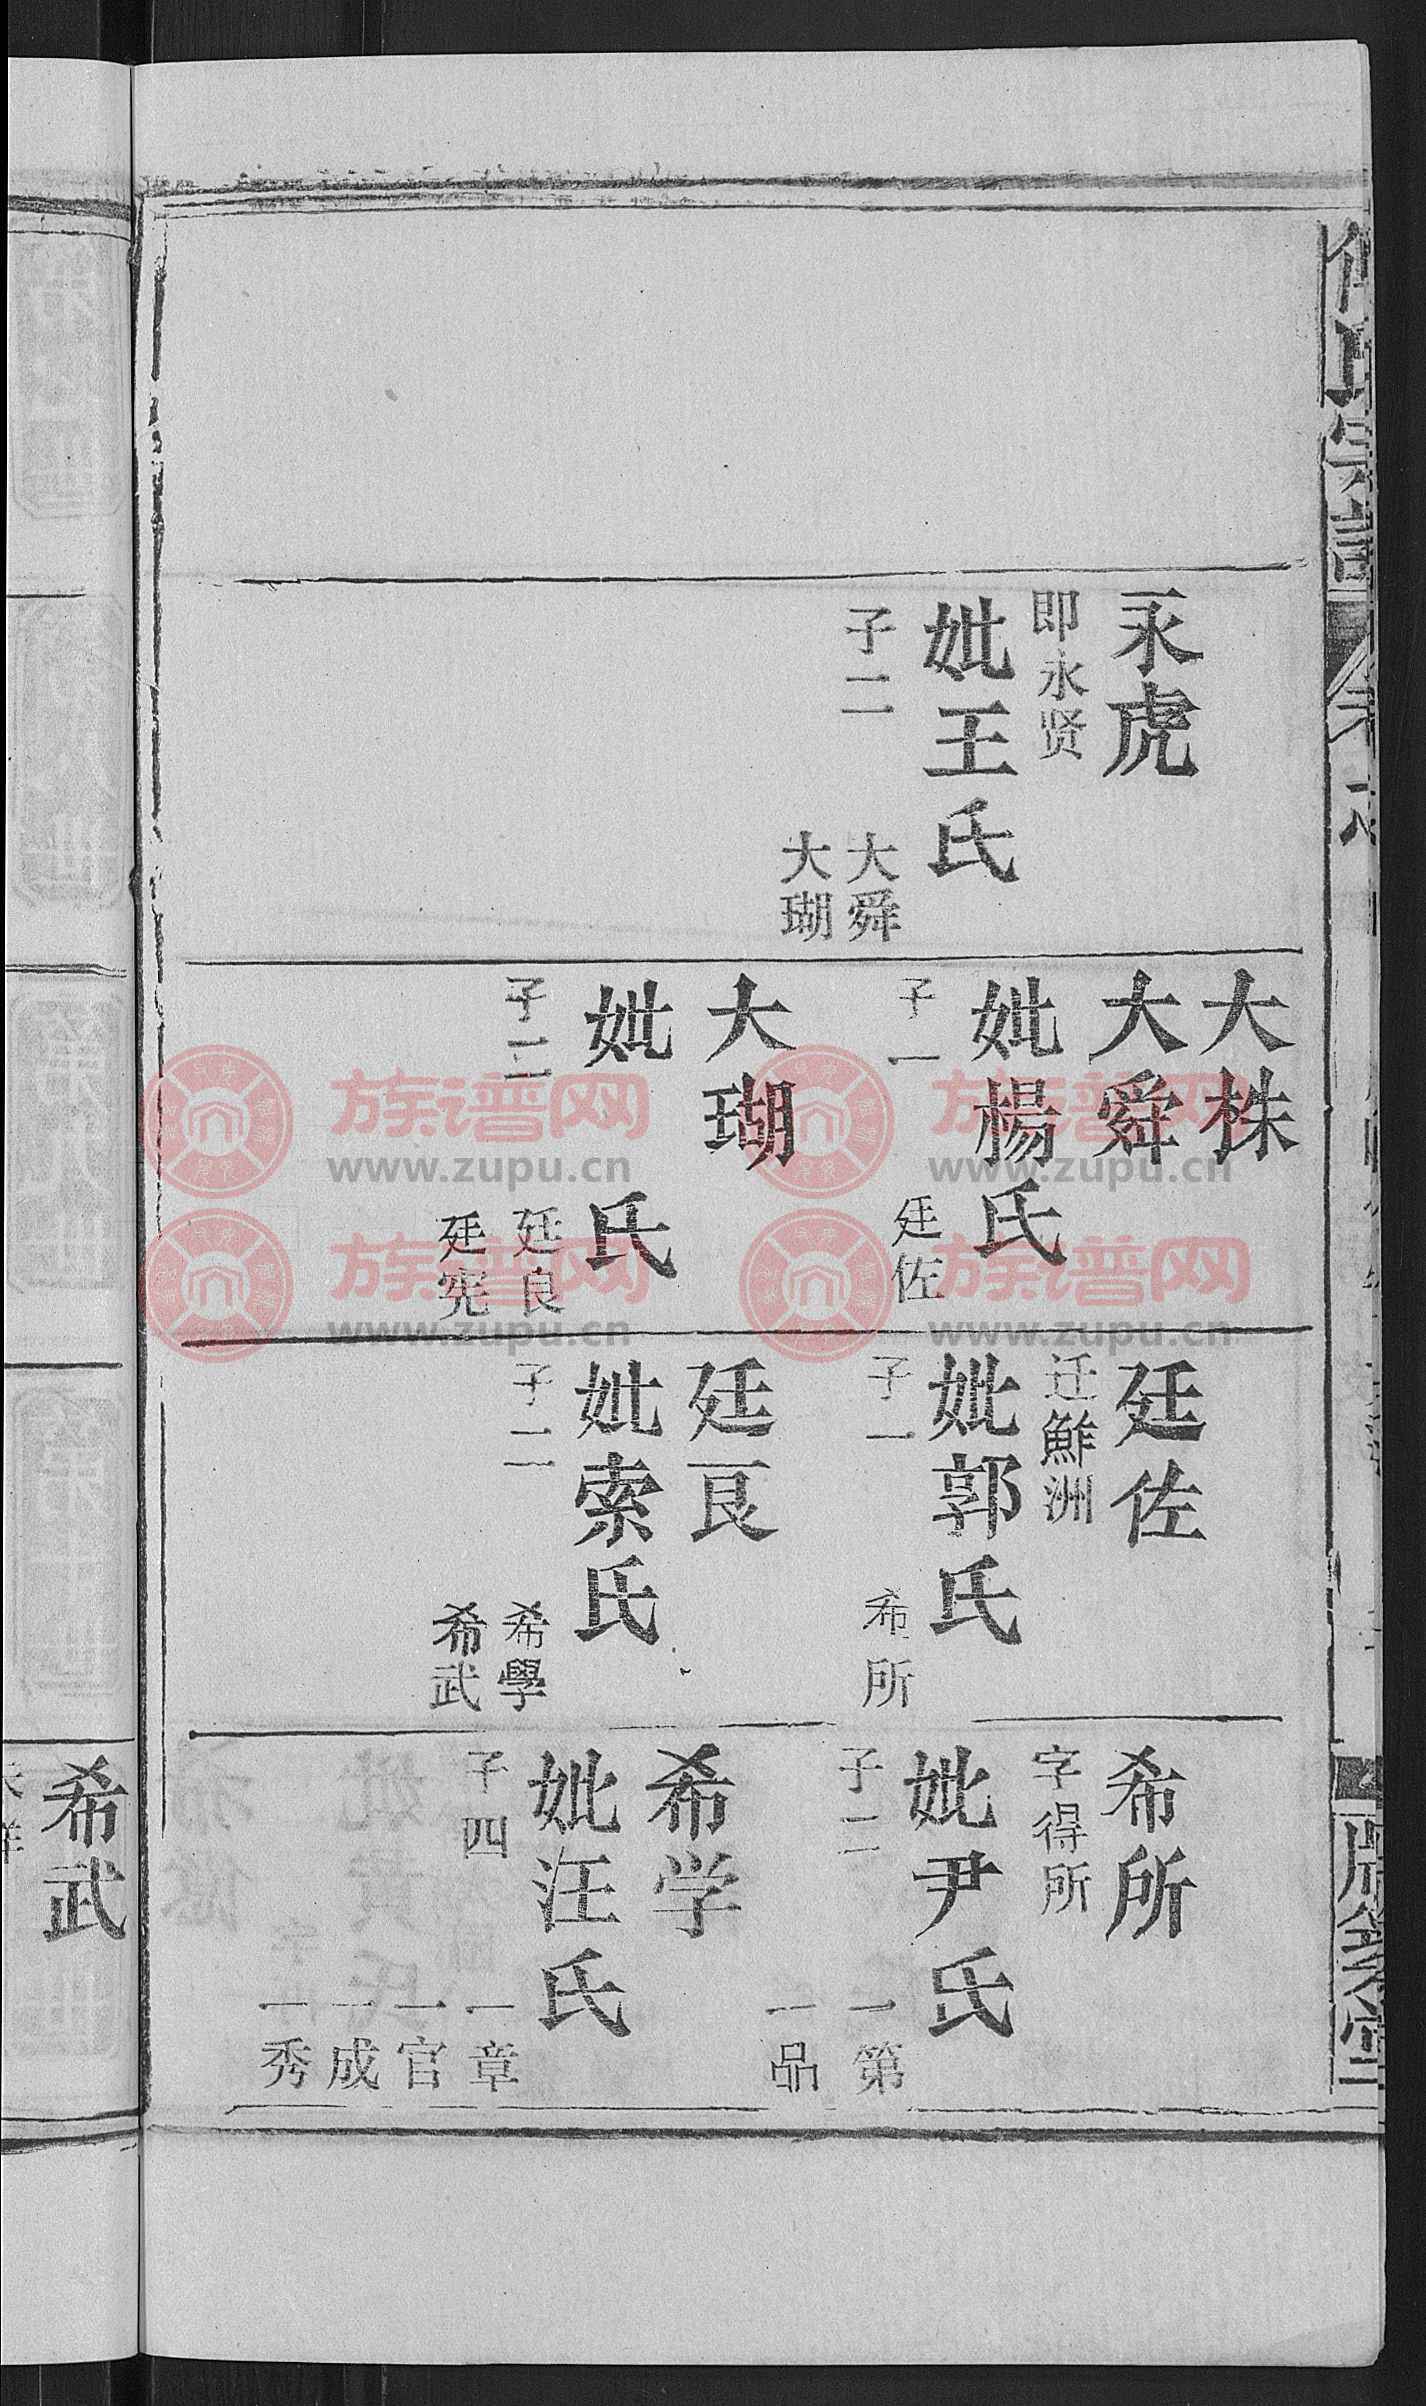 永虎
即永贤
妣王氏
子二
大舜
大瑚
大株
大舜
妣楊氏
子一
廷佐
大瑚
妣 氏
子二
廷良
廷宪
廷佐
迁鮓洲
妣郭氏
子一
希所
廷良
妣索氏
子二
希學
希武
希所
字得所
妣尹氏
子二
一第
一品
希学
妣汪氏
子四
一章
一官
一成
一秀
希武
族谱网
www.zupu.cn
族谱网
www.zupu.cn
族谱网
www.zupu.cn
族谱网
www.zupu.cn